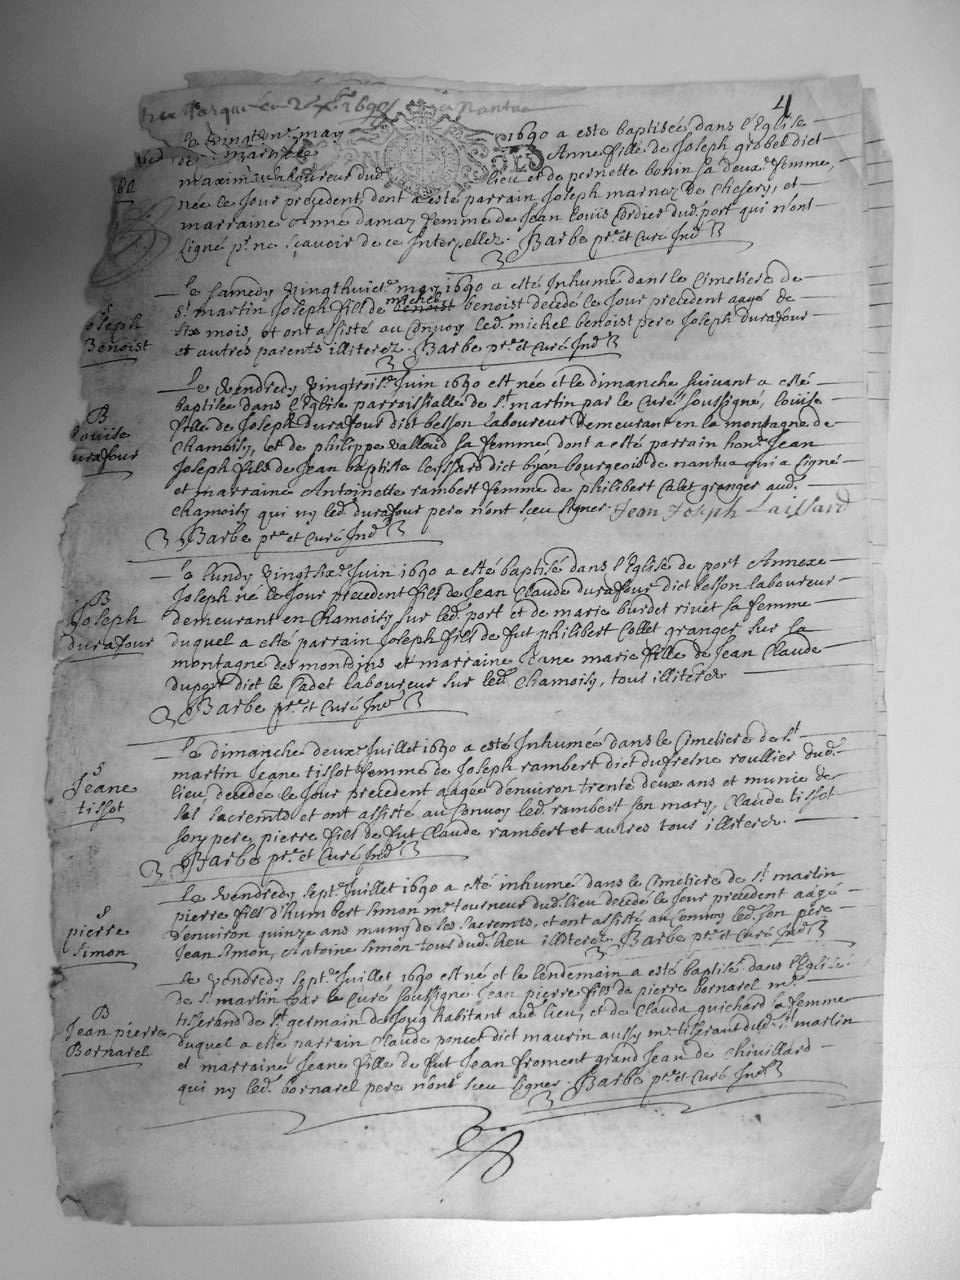 4
1690
le vingt may 1690 a esté baptisée dans l'Eglise
de St martin Anne fille de Joseph grobel dict
maximin laboureur dud. lieu et de pernette bonin sa deuxe. femme,
née le Jour précedent, dont a esté parrain Joseph marnaz de Chesery, et
marraine Anne damaz femme de Jean louis Cordier dud. port qui n'ont
signé pr. ne sçavoir de ce Interpellez. Barbe ptre et Curé Indt
Joseph
Benoist
Le samedy vingthuicte. may 1690 a esté Inhumé dans le Cimetiere de
St. martin Joseph fils de michel benoist decedé le Jour précedent aagé de
six mois, et ont assisté au Convoy led. michel benoist pere Joseph durafour
et autres parents illiterez. Barbe ptre et Curé Indt
B
Louise
durafour
Le vendredy vingttroise. Juin 1690 est née et le dimanche suivant a esté
baptisée dans l'Eglise parroissialle de St. martin par le Curé soussigné, louise
fille de Joseph durafour dict besson laboureur demeurant en la montagne de
Chamoisy, et de philippe valloud sa femme, dont a esté parrain honble. Jean
Joseph fils de Jean baptiste lessard dict byon bourgeois de nantua qui a signé
et marraine Antoinette rambert femme de philibert Calet granger aud.
Chamoisy qui ny led. durafour pere n'ont sçeu signer. Jean Joseph Laissard
Barbe ptre et Curé Indt
B
Joseph
durafour
Le lundy vingtsixe. Juin 1690 a esté baptisé dans l'Eglise de port Annexe
Joseph né le Jour précedent fils de Jean Claude durafour dict besson laboureur
demeurant en Chamoisy sur led. port et de marie burdet rivet sa femme
duquel a esté parrain Joseph fils de fut philibert Collet granger sur la
montagne des mondins et marraine Jane marie fille de Jean Claude
duport dict le Cadet laboureur sur led. Chamoisy, tous illiterez
Barbe ptre et Curé Indt
S
Jeane
tissot
Le dimanche deuxe. Juillet 1690 a esté Inhumée dans le Cimetiere de St.
martin Jeane tissot femme de Joseph rambert dict dufresne roullier dud.
lieu, decedée le Jour précedent aagée d'environ trente deux ans et munie de
ses sacremts. et ont assisté au Convoy led. rambert son mary, Claude tissot
son pere, pierre fils de fut Claude rambert et autres tous illiterez.
Barbe ptre et Curé Indt
S
pierre
simon
Le vendredy septe. Juillet 1690 a esté inhumé dans le Cimetiere de St. martin
pierre fils d'humbert simon me. tourneur dud. lieu decedé le Jour précedent aagé
d'environ quinze ans muny de ses sacremts. et ont assisté au Convoy led. son pere
Jean simon, Antoine simon tous dud. lieu illiterez. Barbe ptre et Curé Indt
B
Jean pierre
Bornarel
Le vendredy septe. Juillet 1690 est né et le lendemain a esté baptisé dans l'Eglise
de St. martin par le Curé soussigné Jean pierre fils de pierre bornarel me.
tisserand de St. germain de Joug habitant aud. lieu, et de Clauda guichard sa femme
duquel a esté parrain Claude poncet dict maurin aussy me. tisserant dud. St. martin
et marraine Jeane fille de fut Jean froment grand Jean de Chivillard
qui ny led. bornarel pere n'ont sçeu signer. Barbe ptre et Curé Indt